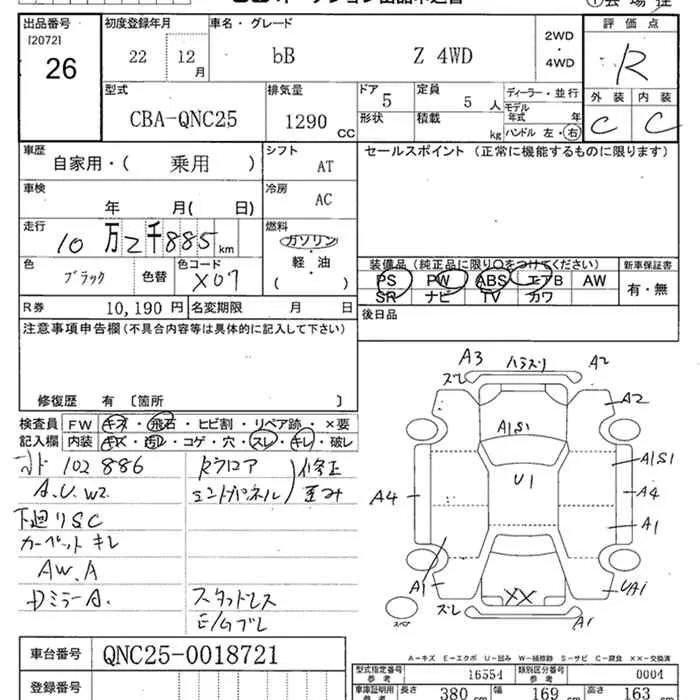 出品番号
[2072]
26
初度登録年月
22 12月
車名・グレード
bB Z 4WD
2WD
・
4WD
評価点
R
外装 内装
C C
型式
CBA-QNC25
排気量
1290 CC
ドア
5
形状
定員
5 人
積載
kg
ディーラー・並行
モデル年式 年
ハンドル 左・右
車歴
自家用・( 乗用 )
シフト
AT
セールスポイント (正常に機能するものに限ります)
車検
年 月( 日)
冷房
AC
走行
10万2千885km
燃料
ガソリン
軽・油
( )
色
ブラック
色替
色コード
X07
装備品 (純正品に限り○をつけてください)
PS PW ABS エアB AW
SR ナビ TV カワ
新車保証書
有・無
R券
10,190 円
名変期限 月 日
後日品
注意事項申告欄(不具合内容等は具体的に記入して下さい)
修復歴 有 〔箇所 〕
検査員記入欄
FW キズ・飛石・ヒビ割・リペア跡・×要
内装 キズ・汚レ・コゲ・穴・スレ・キレ・破レ
102886
A.U.W2
下廻りSC
カーペットキレ
AW.A
DミラーA.
修正
歪み
エンドパネル
スタッドレス
E/Gブレ
A3
A2
ズレ
A2
A1S1
U1
A1S1
A4
A4
A1
A1
XX
UA1
ズレ
A1
スペア
A-キズ E-エクボ U-凹み W-補修跡 S-サビ C-腐食 ××-交換済
車台番号
QNC25-0018721
登録番号
型式指定番号 参考
16554
類別区分番号 参考
0004
車庫証明用 参考
長さ 380 cm
幅 169 cm
高さ 163 cm